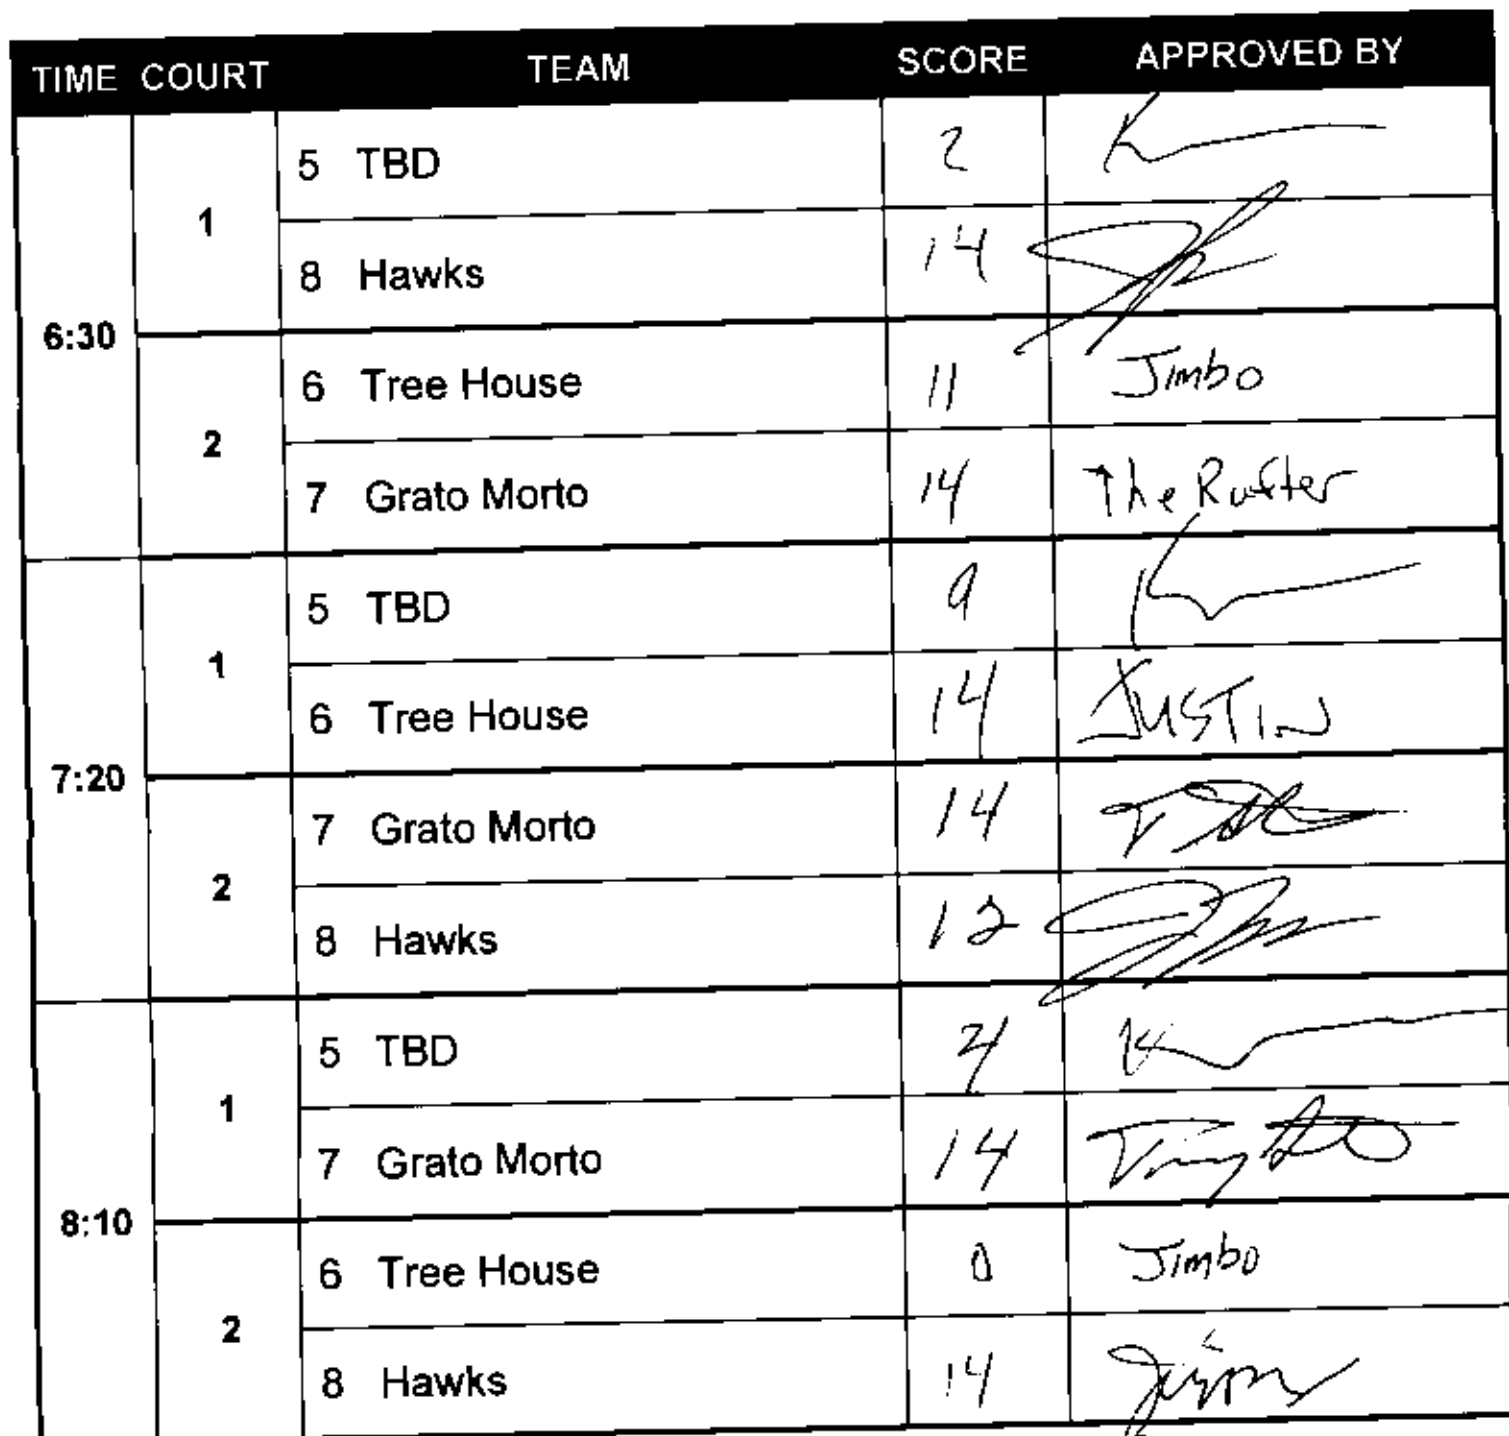 TIME COURT TEAM SCORE APPROVED BY
6:30
1
5 TBD 2
8 Hawks 14
2
6 Tree House 11 Jimbo
7 Grato Morto 14 The Rufter
7:20
1
5 TBD 9
6 Tree House 14 JUSTIN
2
7 Grato Morto 14
8 Hawks 12
8:10
1
5 TBD
7 Grato Morto 14
2
6 Tree House 0 Jimbo
8 Hawks 14